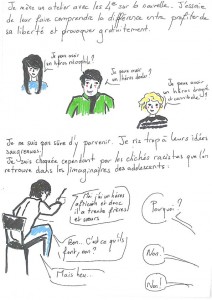 Je mène un atelier avec les 4e sur la nouvelle... J'essaie
de leur faire comprendre la différence entre profiter de
sa liberté et provoquer gratuitement.
Je peux avoir
un héros
?
Je peux avoir
un héros dealer?
Je peux avoir
un héros drogué
?
Je ne suis pas sûre d'y parvenir. Je ris trop à leurs idées
saugrenues.
Je suis choquée cependant par les clichés racistes que l'on
retrouve dans les imaginaires des adolescents:
Moi, j'ai un héros
africain et donc
il a trente frères
et sœurs
Pourquoi?
Bon... C'est ce qu'ils
font, non?
Non.
Mais heu...
Non!